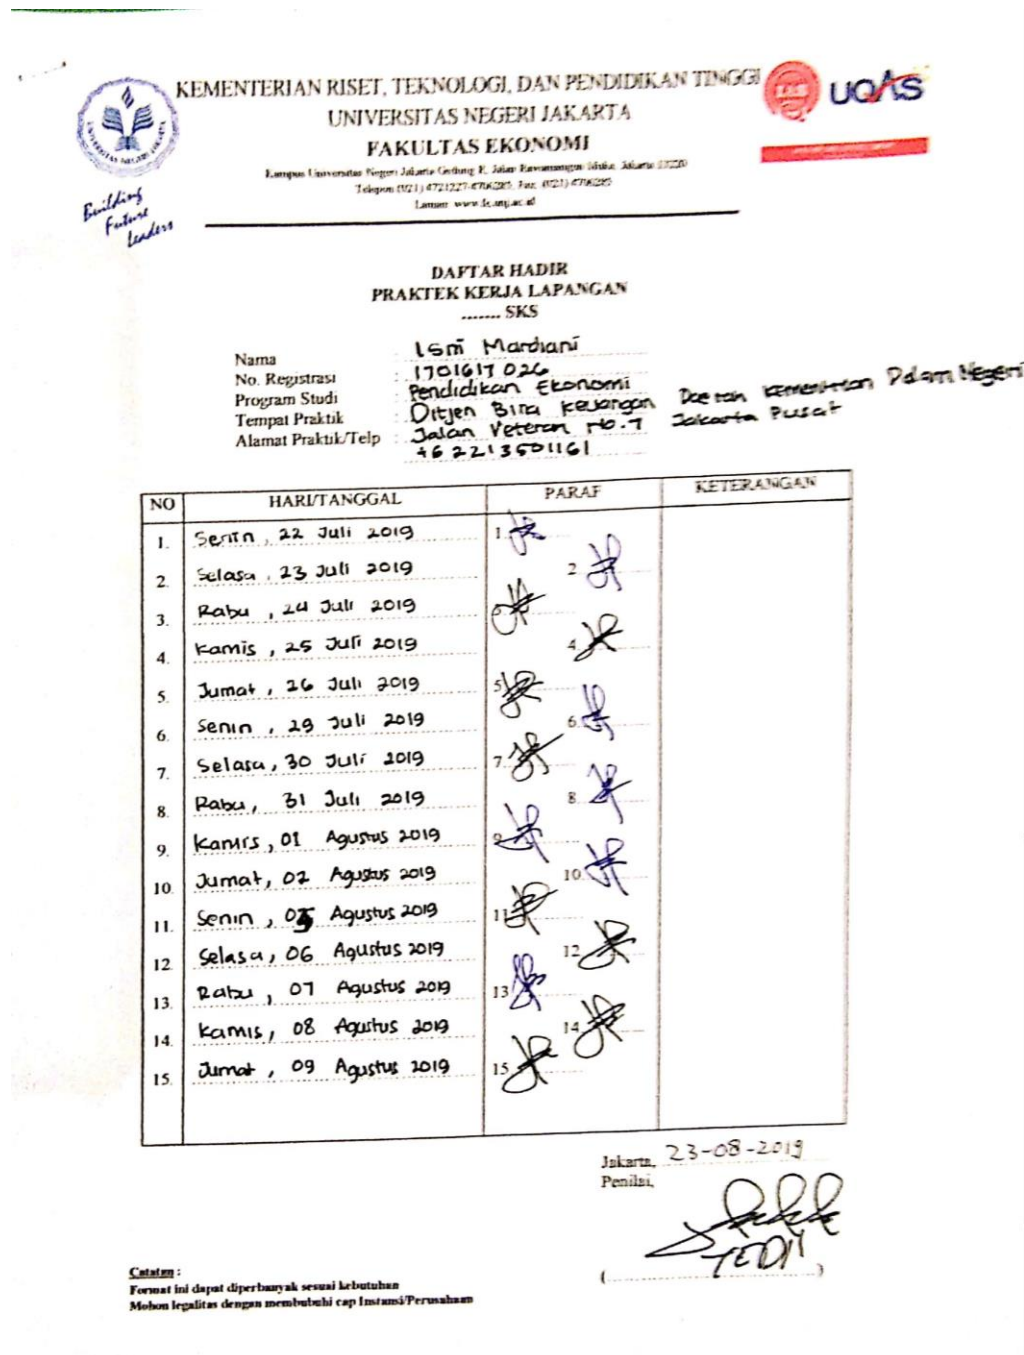 KEMENTERIAN RISET, TEKNOLOGI, DAN PENDIDIKAN TINGGI
UNIVERSITAS NEGERI JAKARTA
FAKULTAS EKONOMI
Kampus Universitas Negeri Jakarta Gedung R, Jalan Rawamangun Muka, Jakarta 13220
Telepon (021) 4721227/4706285, Fax. (021) 4706285
Laman: www.fe.unj.ac.id
UNIVERSITAS NEGERI JAKARTA
Building
Future
Leaders
UQAS
DAFTAR HADIR
PRAKTEK KERJA LAPANGAN
....... SKS
Nama : Isni Mardiani
No. Registrasi : 1701617026
Program Studi : Pendidikan Ekonomi
Tempat Praktik : Ditjen Bina Keuangan Daerah Kementrian Dalam Negeri
Alamat Praktik/Telp : Jalan Veteran No.7 Jakarta Pusat
+62213501161
NO HARI/TANGGAL PARAF KETERANGAN
1. Senin, 22 Juli 2019 1.
2. Selasa, 23 Juli 2019 2.
3. Rabu, 24 Juli 2019 3.
4. Kamis, 25 Juli 2019 4.
5. Jumat, 26 Juli 2019 5.
6. Senin, 29 Juli 2019 6.
7. Selasa, 30 Juli 2019 7.
8. Rabu, 31 Juli 2019 8.
9. Kamis, 01 Agustus 2019 9.
10. Jumat, 02 Agustus 2019 10.
11. Senin, 05 Agustus 2019 11.
12. Selasa, 06 Agustus 2019 12.
13. Rabu, 07 Agustus 2019 13.
14. Kamis, 08 Agustus 2019 14.
15. Jumat, 09 Agustus 2019 15.
Jakarta, 23-08-2019
Penilai,
TEDI
(..............................)
Catatan :
Format ini dapat diperbanyak sesuai kebutuhan
Mohon legalitas dengan membubuhi cap Instansi/Perusahaan